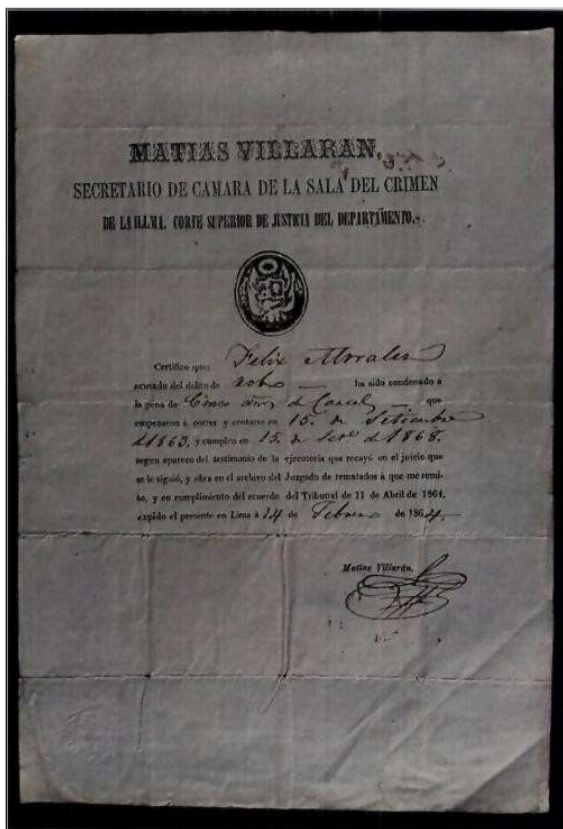 MATIAS VILLARAN,
SECRETARIO DE CAMARA DE LA SALA DEL CRIMEN
DE LA ILLMA. CORTE SUPERIOR DE JUSTICIA DEL DEPARTAMENTO.
Certifico que Felix Morales
acusado del delito de robo — ha sido condenado á
la pena de Cinco años de Carcel — que
empezaron á correr y contarse en 15. de Setiembre
d 1863, y cumplen en 15. de Sete d 1868.
segun aparece del testimonio de la ejecutoria que recayó en el juicio que
se le siguió, y obra en el archivo del Juzgado de rematados á que me remi-
to, y en cumplimiento del acuerdo del Tribunal de 11 de Abril de 1864,
expido el presente en Lima á 14 de Febrero de 1864.
Matias Villarán.